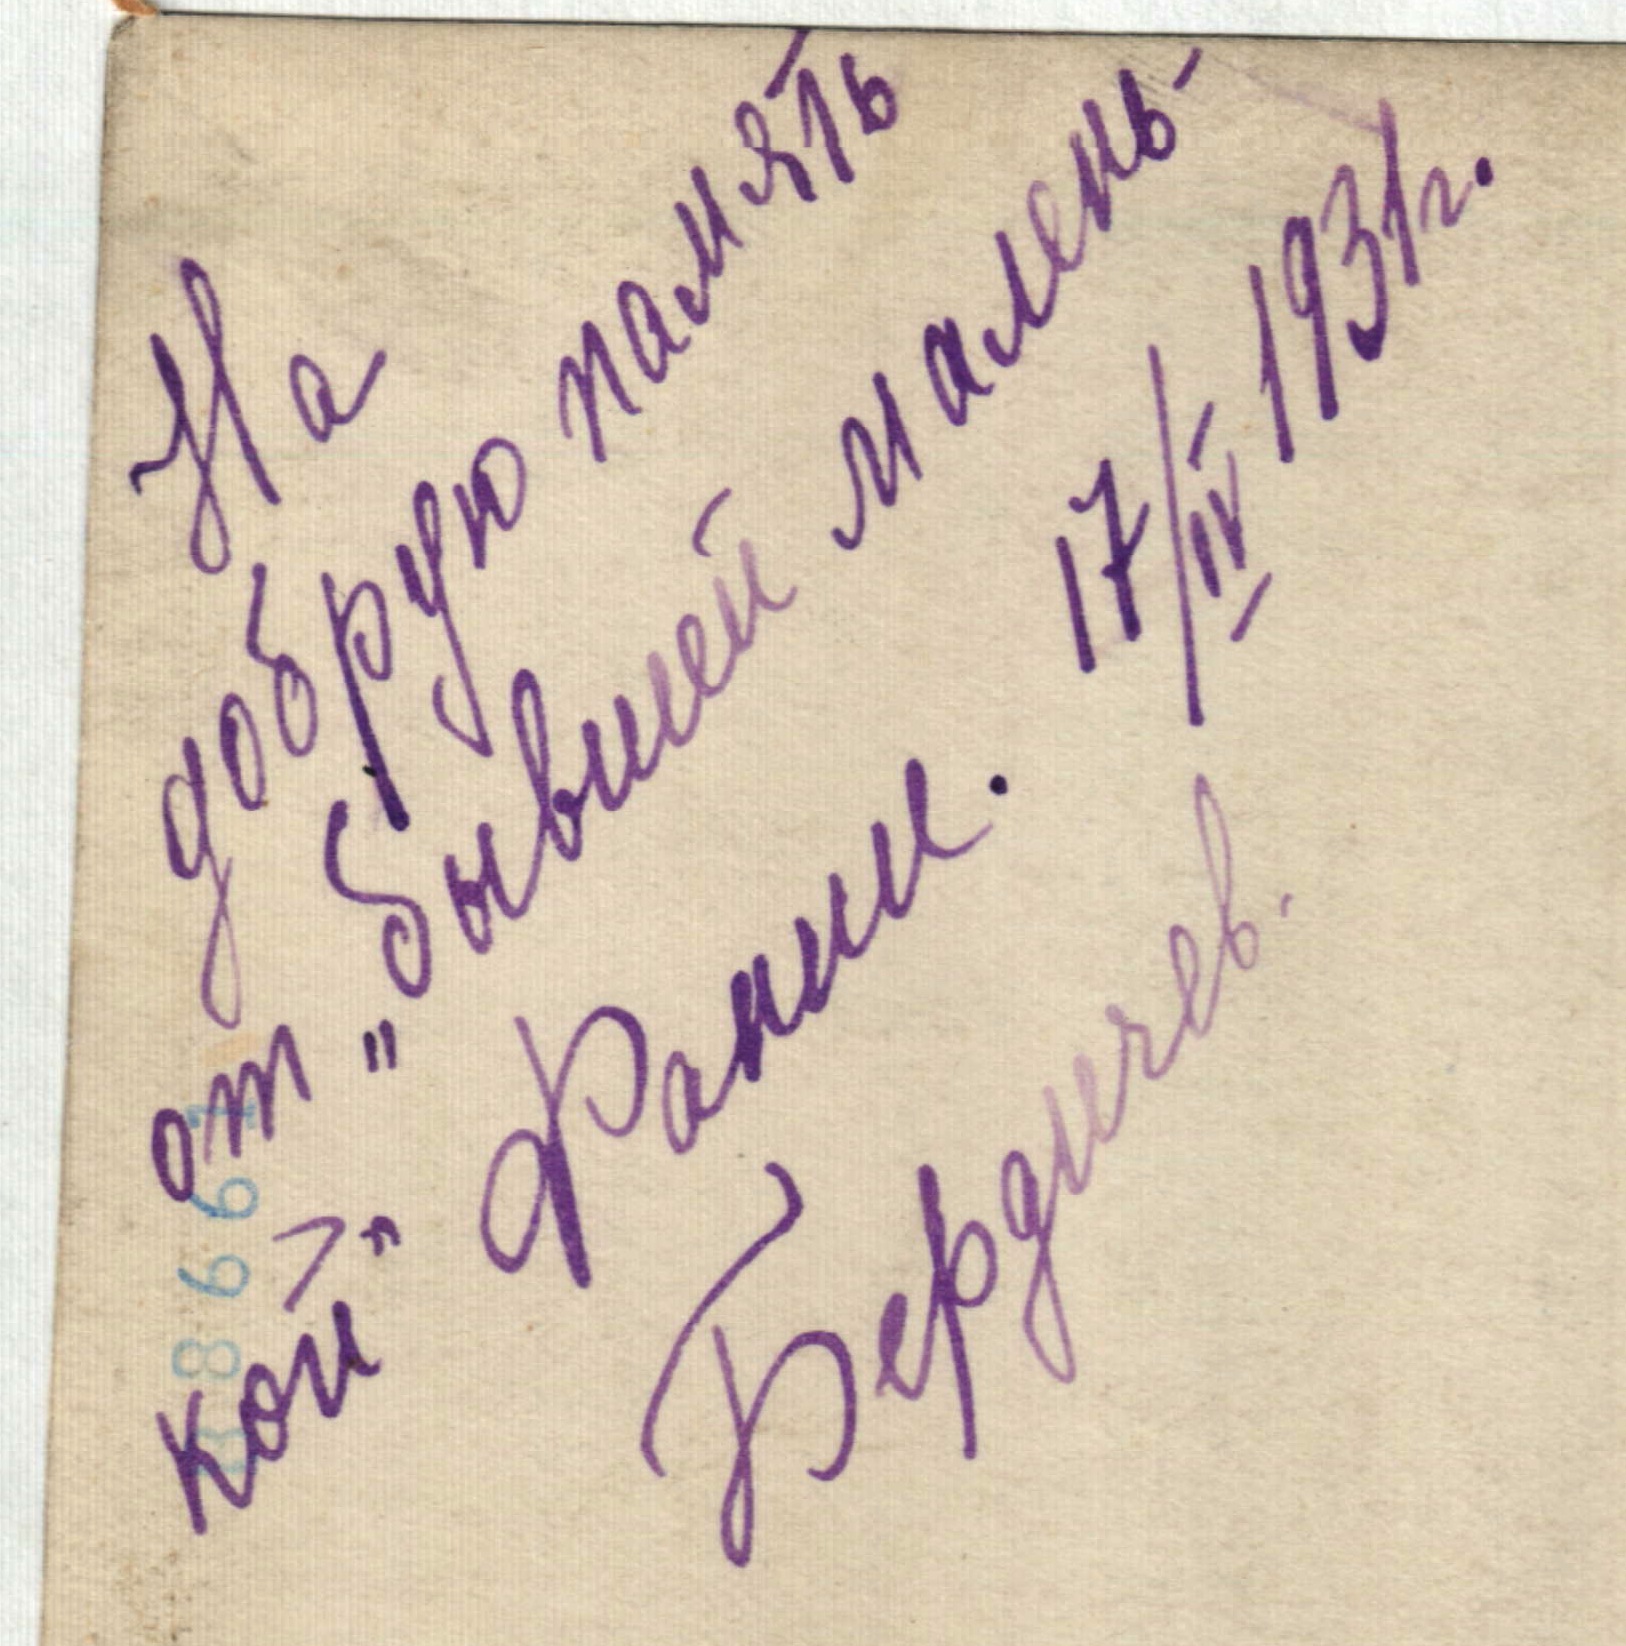 На
добрую память
от "бывшей малень-
кой" Фании.
17/IV 1931г.
Бердичев.